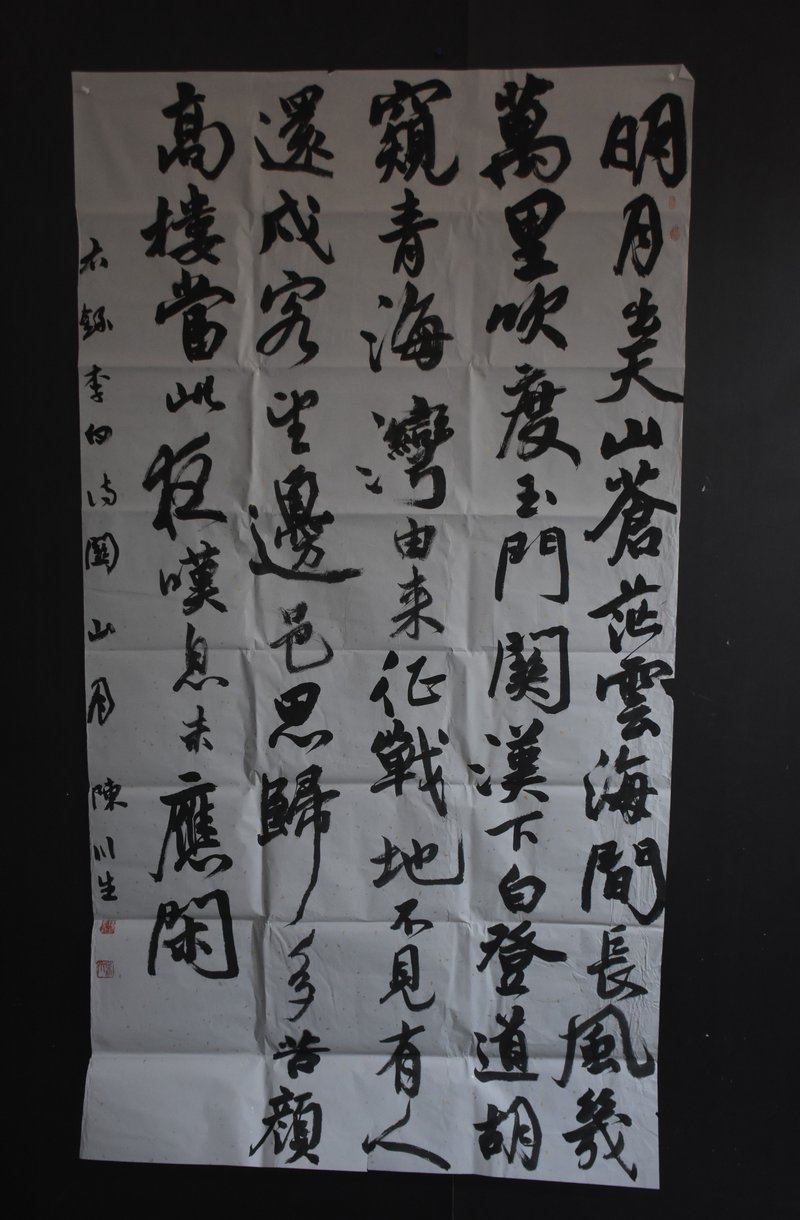 明月出天山蒼茫雲海間長風幾
萬里吹度玉門關漢下白登道胡
窺青海灣由来征戰地不見有人
還戍客望邊邑思歸多苦顏
高樓當此夜嘆息未應閑
右錄李白詩關山月 陳川生